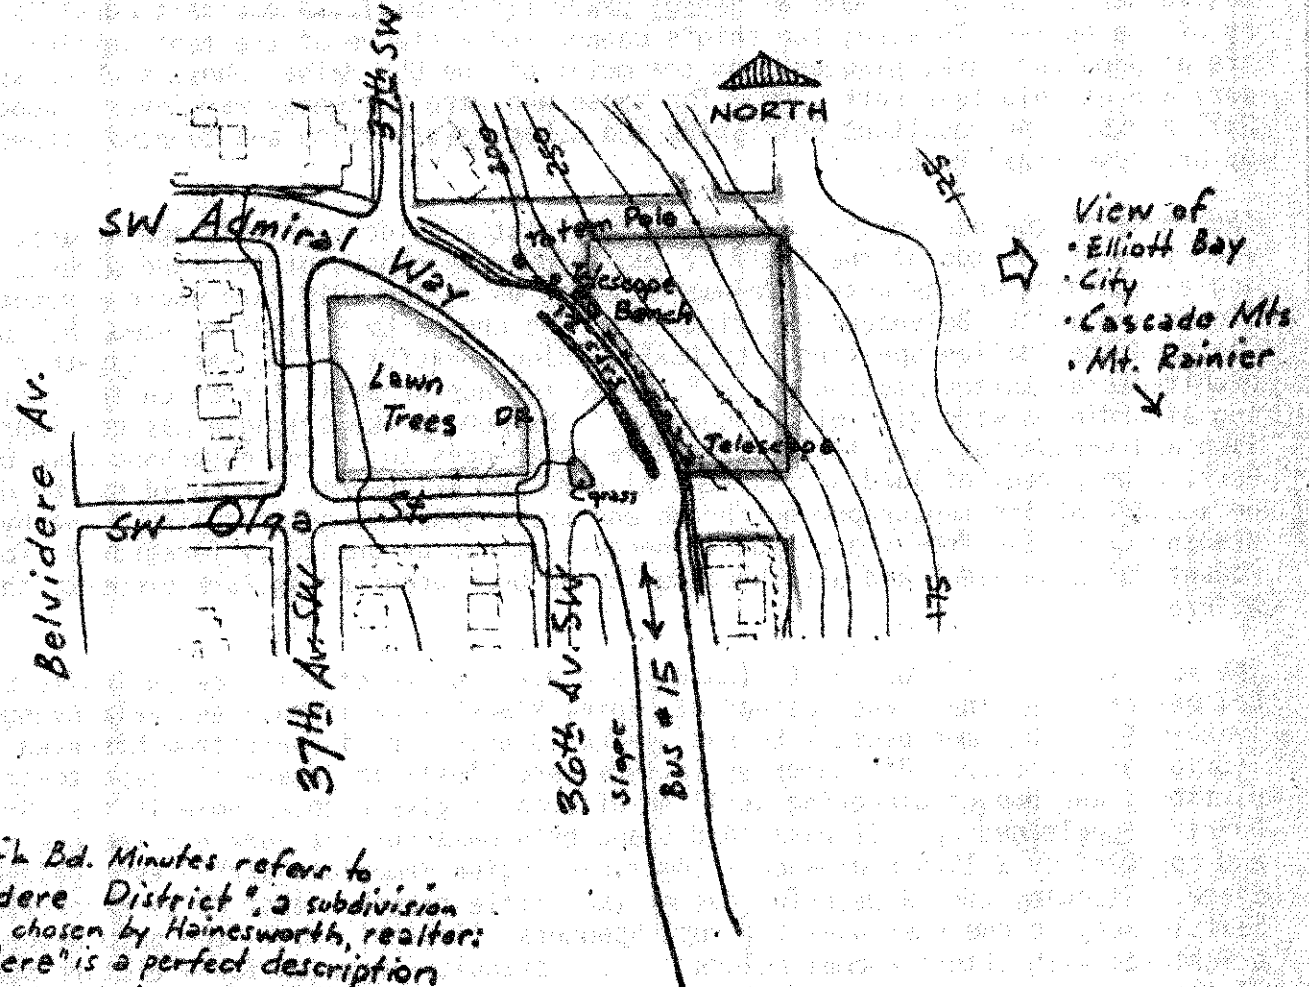 37th SW
NORTH
200
250
125
SW Admiral
Way
Totem Pole
Telescope
Bench
View of
• Elliott Bay
• City
• Cascade Mts
• Mt. Rainier
Lawn
Trees
DF
Telescope
grass
Belvidere Av.
SW Olga St.
175
37th Av. SW
36th Av. SW
Slope
Bus #15
Bd. Minutes refers to
dere District", a subdivision
chosen by Hainesworth, realtor:
ere" is a perfect description